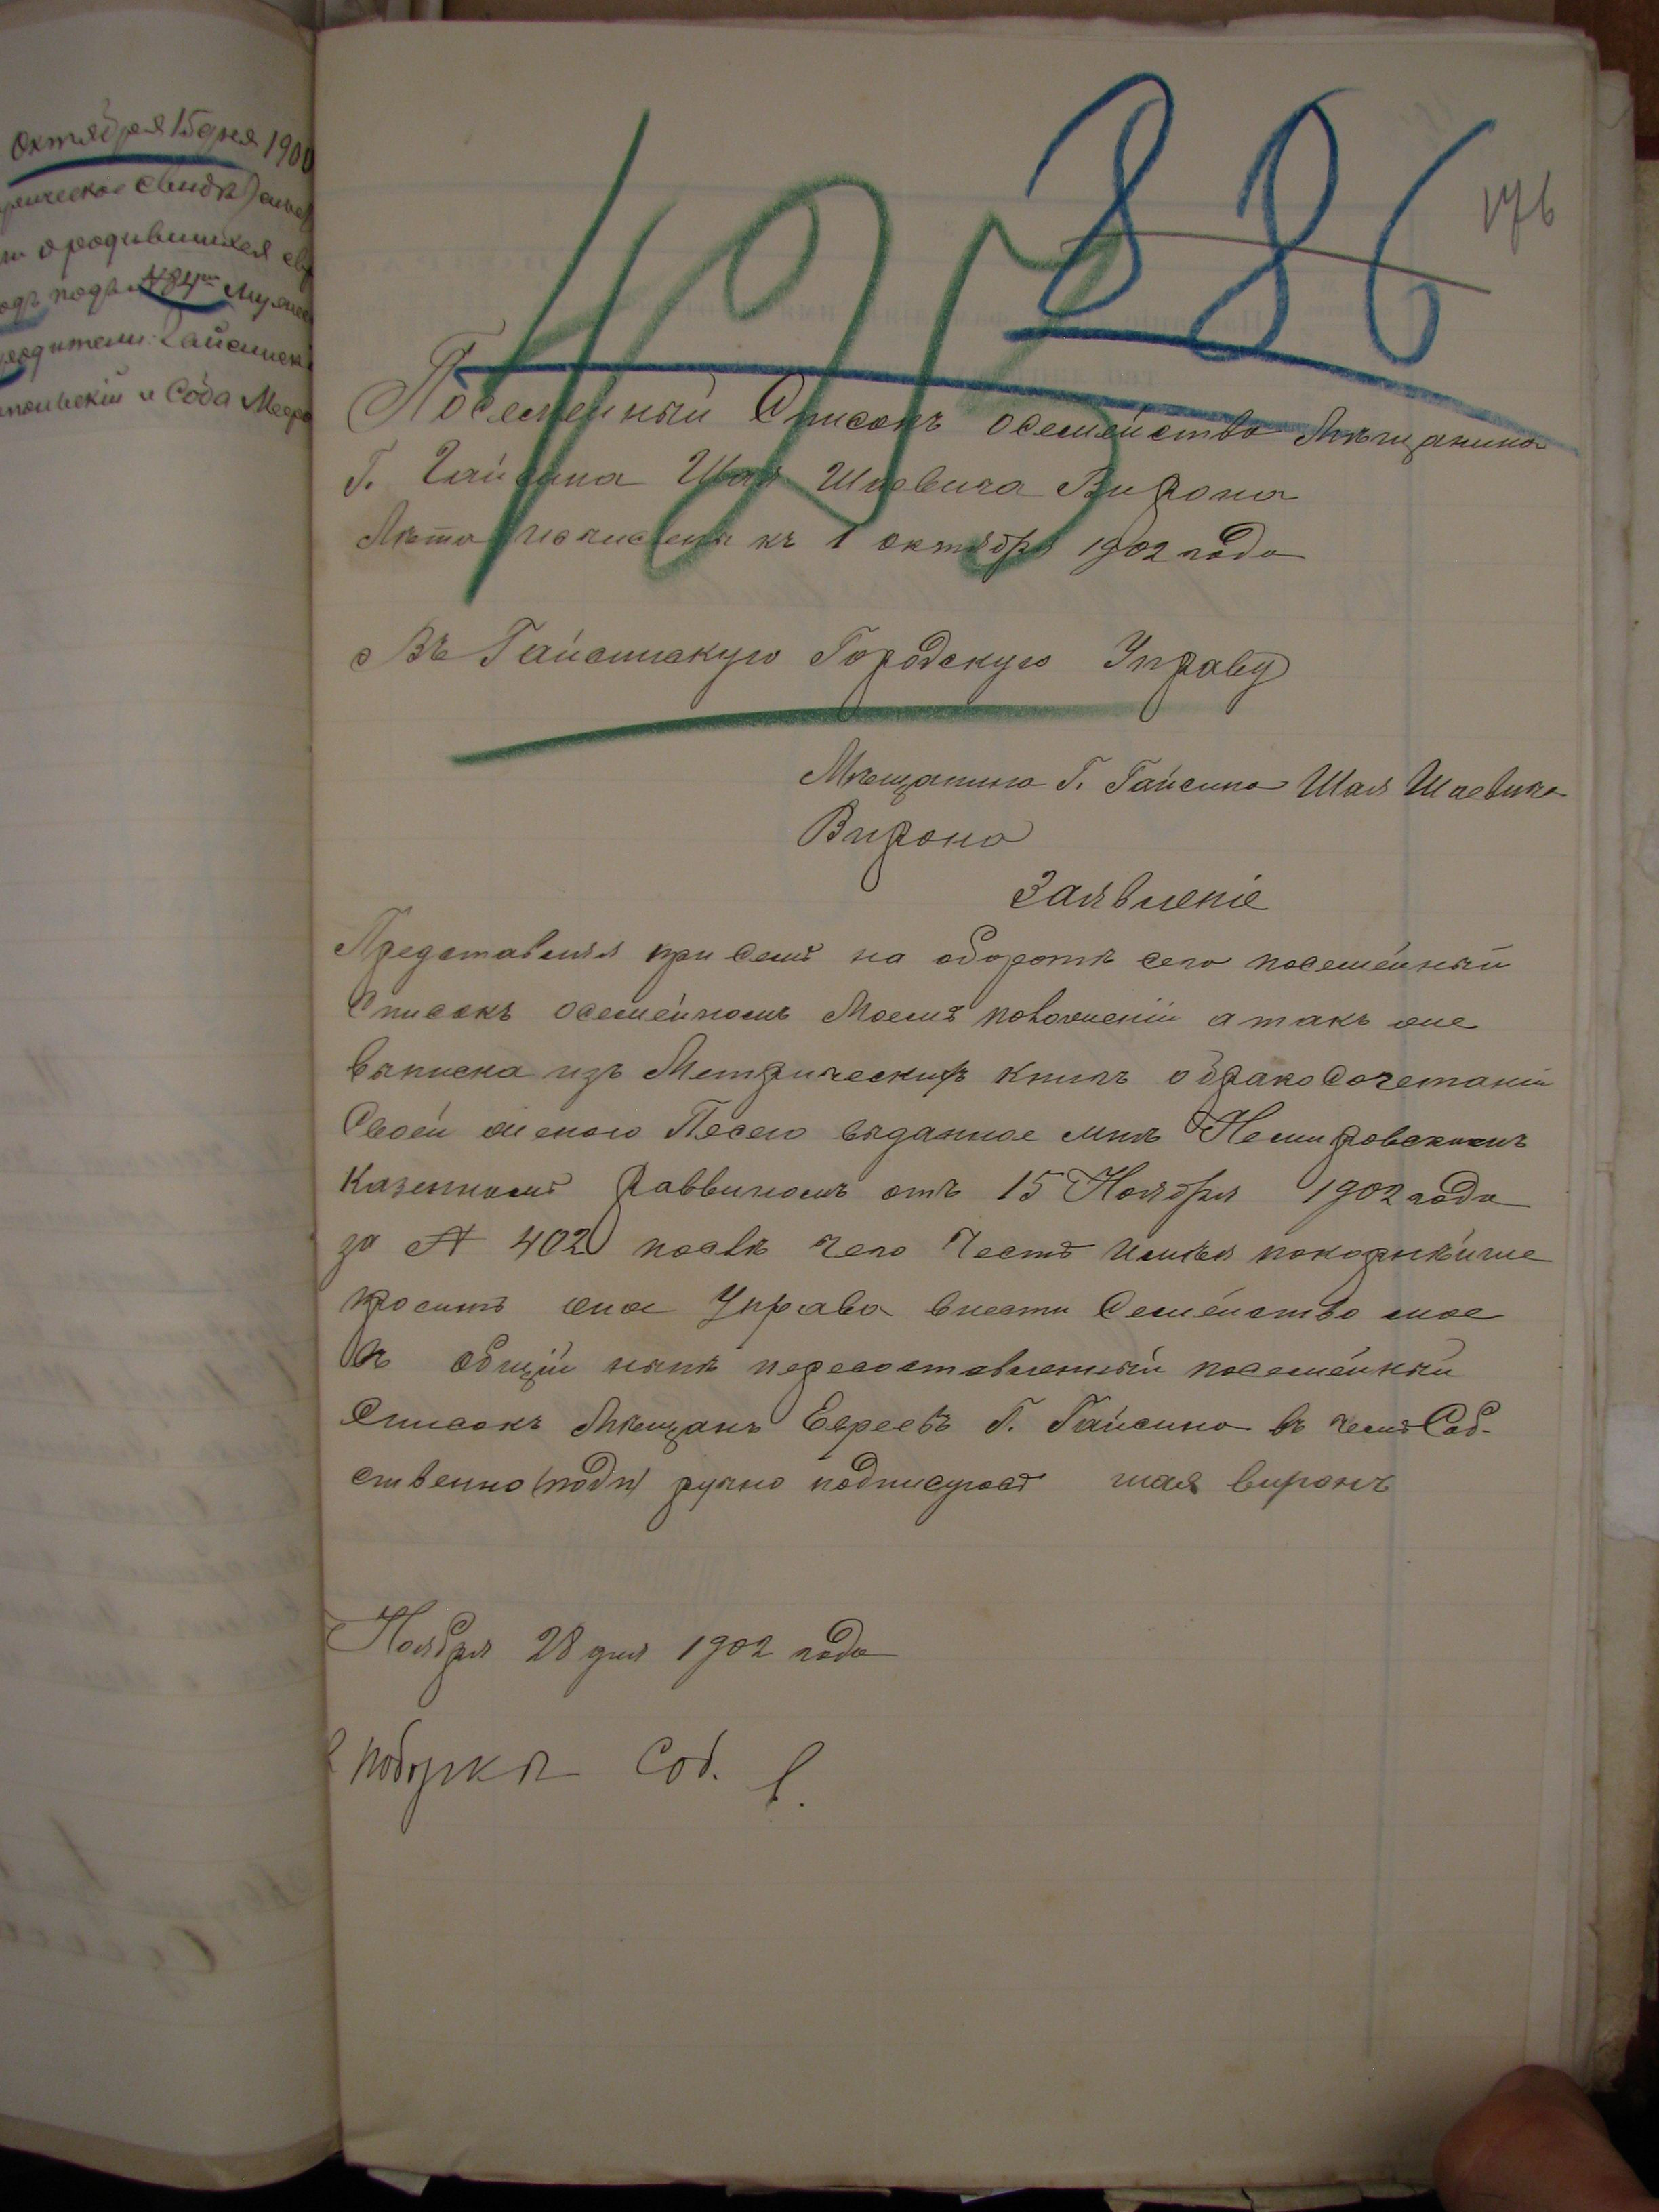 Октября 15 дня 1900
о родившихся
подъ № 84
родители: Гайсинск
и Сода
495
886
176
Посемейный Списокъ осемействе Мѣщанина
Г. Гайсина Шая Шаевича Вирона
Лѣта исчислены къ 1 октября 1902 года
Въ Гайсинскую Городскую Управу
Мѣщанина Г. Гайсина Шая Шаевича
Вирона
Заявленіе
Представляя при семъ на оборотѣ сего посемейный
Списокъ осемейномъ Моемъ положеніи а такъ же
выписка изъ Метрическихъ книгъ обракосочетаніи
Своей женою Песею выданное мнѣ Немировскимъ
Казеннымъ Раввиномъ отъ 15 Ноября 1902 года
за № 402 послѣ чего Честь имѣю покорнѣйше
росить Управа внести Семейство мое
въ общій нынѣ пересоставленный посемейный
Списокъ Мѣщанъ Евреевъ Г. Гайсина въ чемъ Соб-
ственно (подп) ручно подписуюсь шая виронъ
Ноября 28 дня 1902 года
Соб. в.